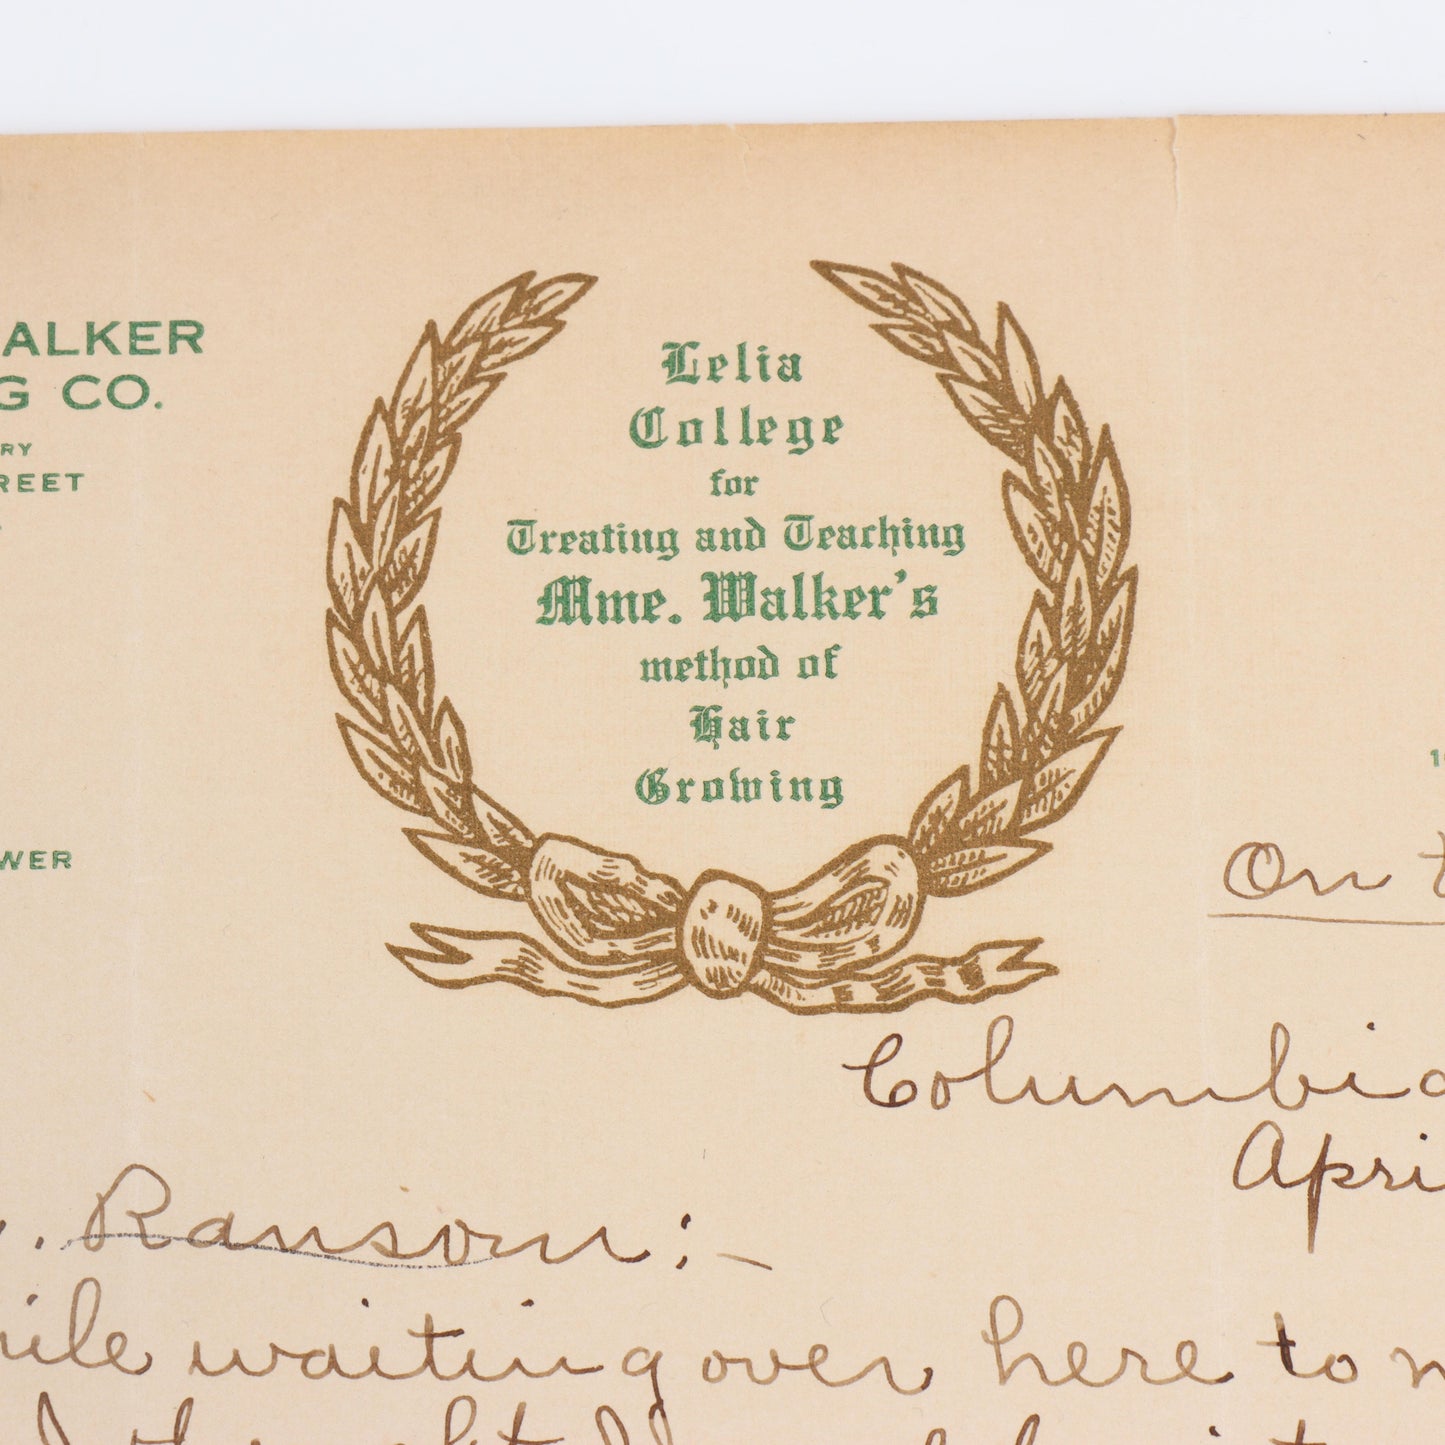 ALKER
G CO.
RY
REET
Lelia
College
for
Treating and Teaching
Mme. Walker's
method of
Hair
Growing
WER
On t
Columbia
Apri
. Ransom:—
hile waiting over here to m